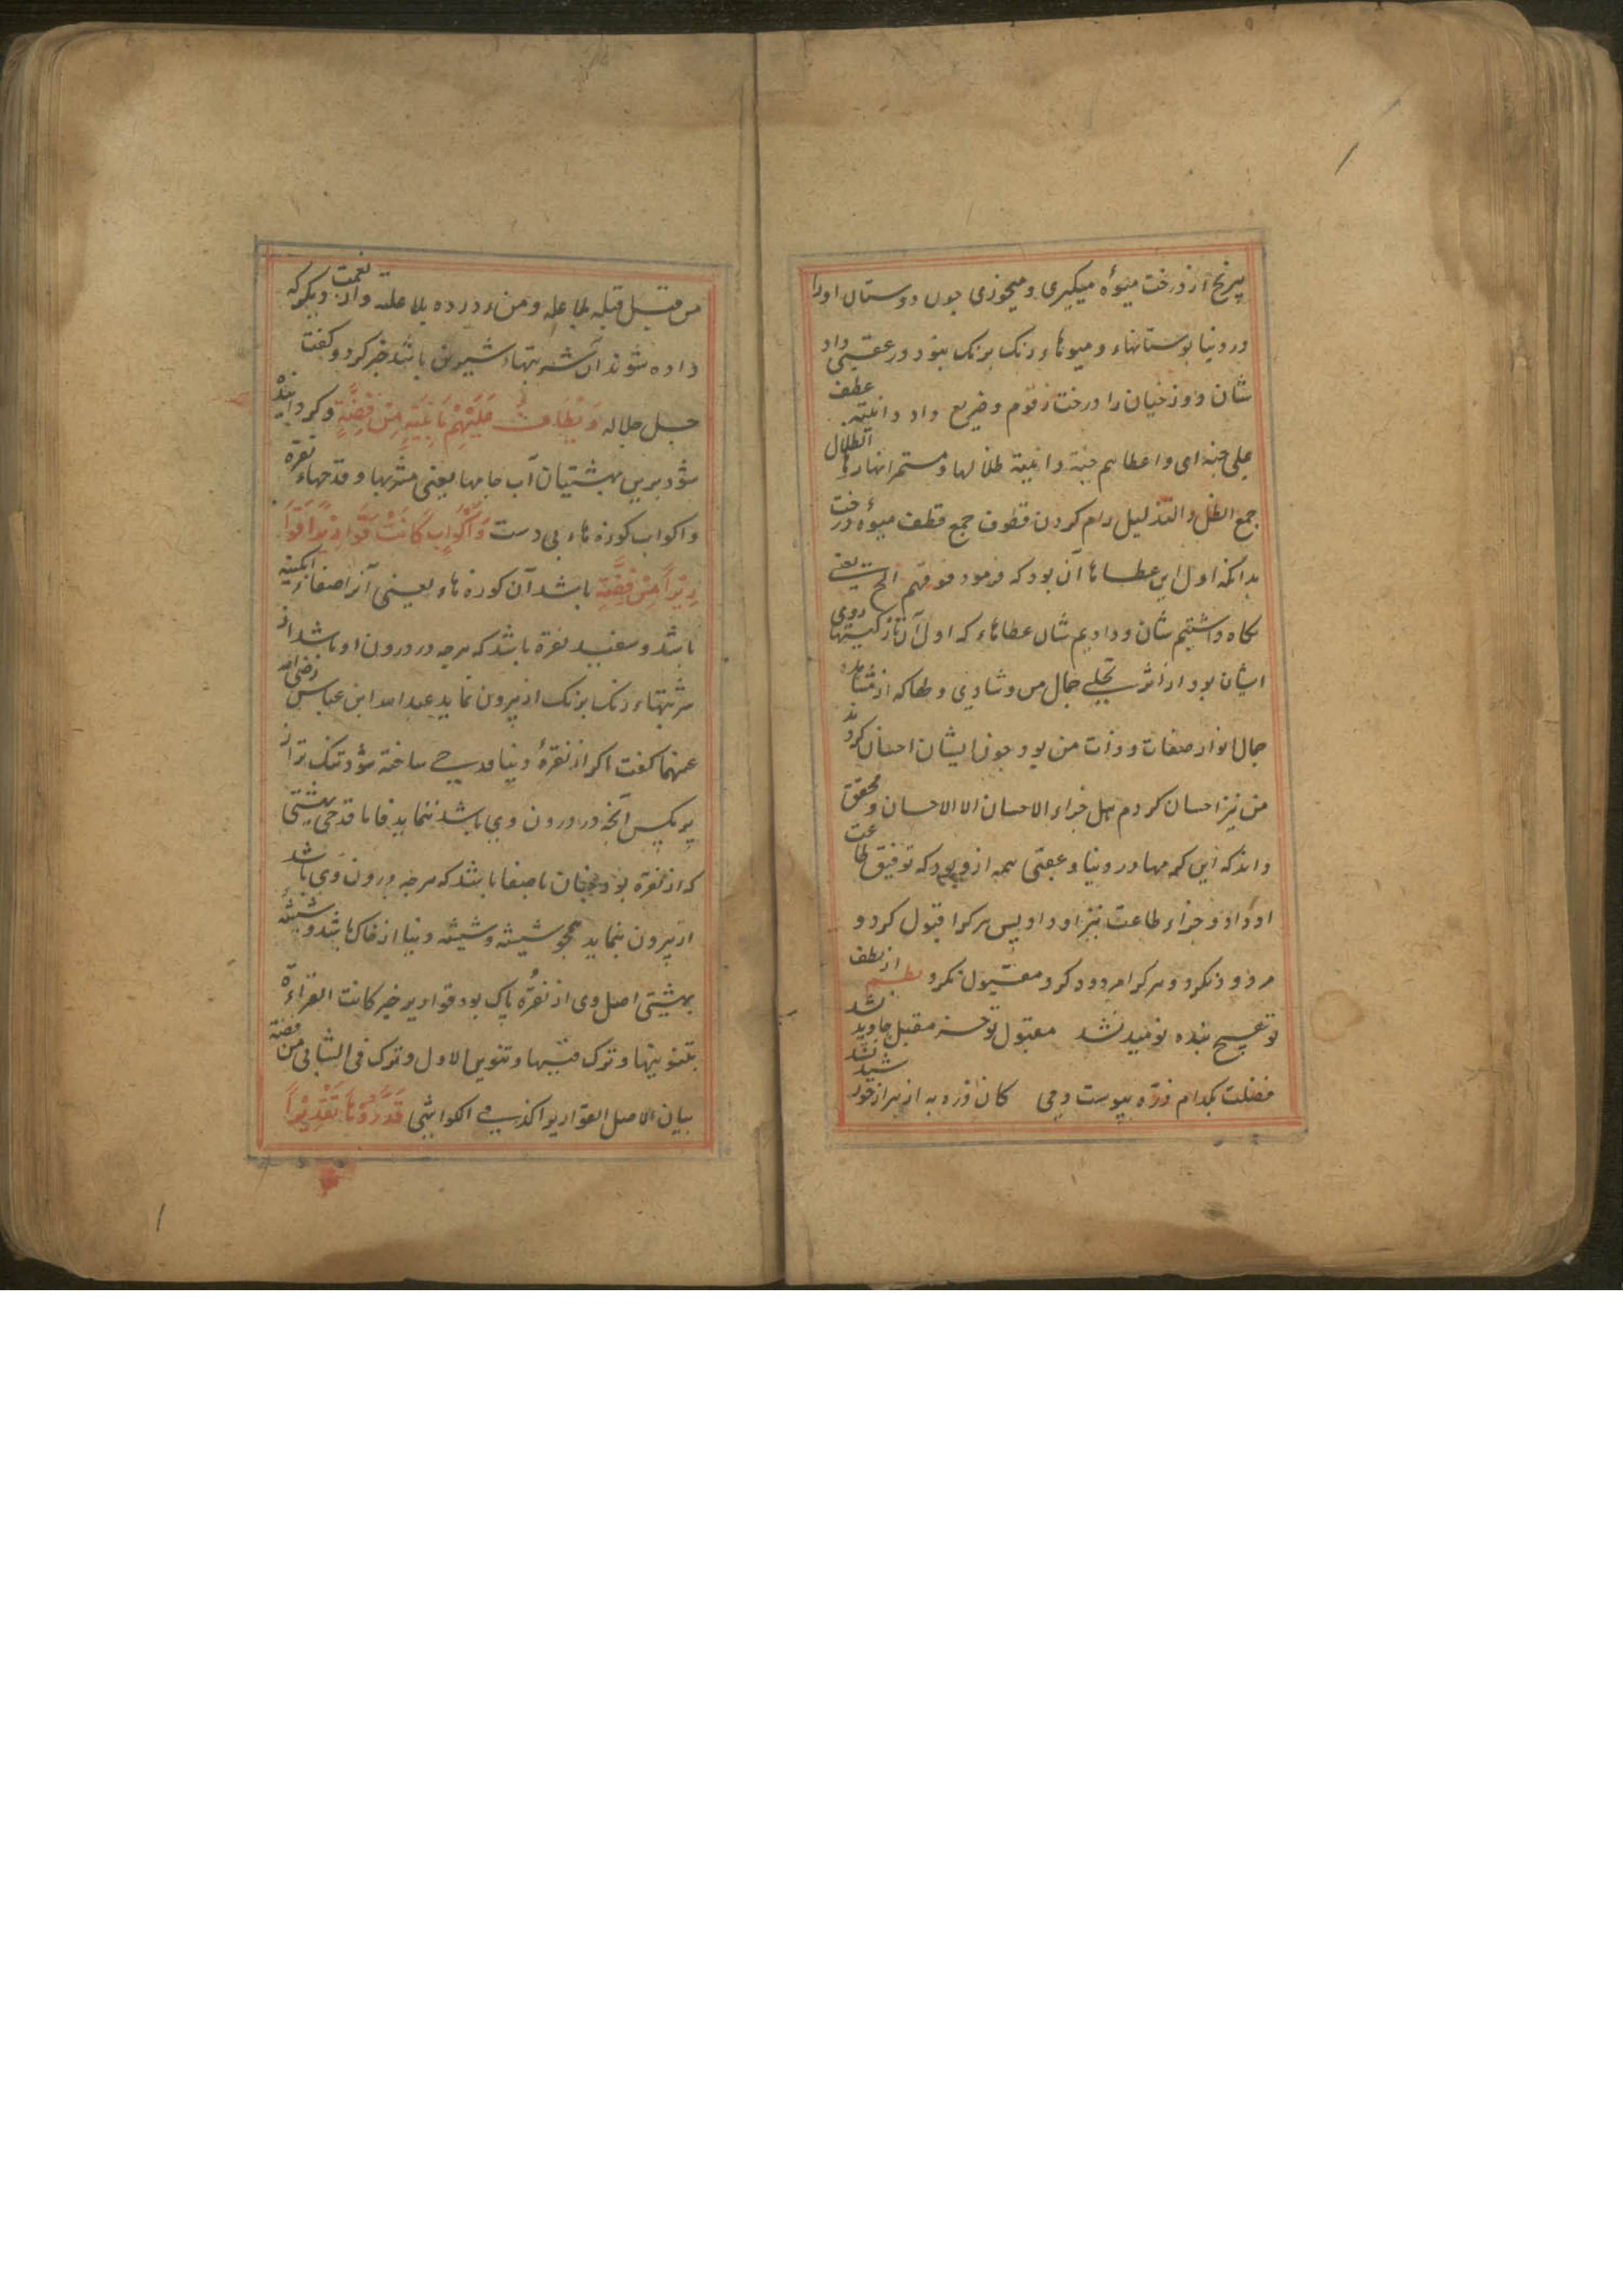 بیرنج از درخت میوهٔ میکیری و میخوری چون دوستان اورا
در دنیا بوستانهاء و میوهاء رنک برنک بنود در عقبی داد
شان و دوزخیان را درخت زقوم و ضریع داد و دانیة عطف
علی جنة ای و اعطاهم جنة دانیة ظلالها و مستمر انهارها الظلال
جمع الظل و التذلیل رام کردن قطوف جمع قطف میوهٔ درخت
بدانکه اول این عطاها آن بود که فرمود فوقهم الخ یعنی
نکاه داشتیم شان و دادیم شان عطاهاء که اول آن تازکیهاء روی
ایشان بود از اثر تجلی جمال من و شادی دلها که از مشاهده
جمال انوار صفات و ذات من بود چون ایشان احسان کردند
من نیز احسان کردم هل جزاء الاحسان الا الاحسان و محقق
داند که این کرمها در دنیا و عقبی همه از و بود که توفیق طاعت
او داد و جزاء طاعت نیز او داد پس هرکرا قبول کرد و
مردود نکرد و هرکرا مردود کرد مقبول نکرد نظم از لطف
تو هیچ بنده نومید نشد مقبول تو جز مقبل جاوید نشد
فضلت بکدام ذره پیوست دمی کان ذره به از هزار خورشید نشد
من قبل قبله بلا علة و من رد رده بلا علة و از نعمت دیکر که
داده شوند آن شربتهاء شیرین باشد خبر کرد و کفت
جل جلاله وَ یُطَافُ عَلَیْهِمْ بِآنِیَةٍ مِنْ فِضَّةٍ و کردانیده
شود برین بهشتیان آب جامها یعنی مشربها و قدحهاء نقره
و اکواب کوزه هاء بی دست وَ اَکْوَابٍ کَانَتْ قَوَارِیْرَا قَوَا
رِیْرَا مِنْ فِضَّةٍ باشد آن کوزه هاء یعنی آنرا صفاء آبکینه
باشد و سفیدی نقره باشد که هرچه در درون او باشد از
شربتهاء رنک برنک از بیرون نماید عبد الله ابن عباس رضی الله
عنهما کفت اکر از نقرهٔ دنیا قدحی ساخته شود تنک تر از
پر مکس آنچه در درون وی باشد ننماید فاما قدح بهشتی
که از نقره بود چنان با صفا باشد که هرچه درون وی باشد
از بیرون بنماید همچو شیشه و شیشه دنیا از خاک باشد و شیشهٔ
بهشتی اصل وی از نقرهٔ پاک بود قواریر خبر کانت القراءة
بتنوینها و ترک تنوینها و تنوین الاول و ترک فی الثانی من فضة
بیان لاصل القواریر اکذ فی الکواشی قَدَّرُوْهَا تَقْدِیْرًا